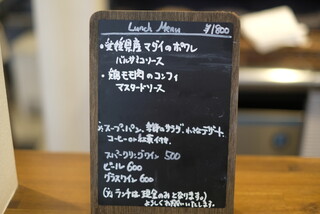 Lunch Menu ¥1800
・愛媛県産マダイのポワレ
バルサミコソース
・鶏モモ肉のコンフィ
マスタードソース
スープ、パン、季節のサラダ、小さなデザート、
コーヒーor紅茶付き。
スパークリングワイン 500
ビール 600
グラスワイン 600
ランチは現金のみとなります。
よろしくお願いいたします。